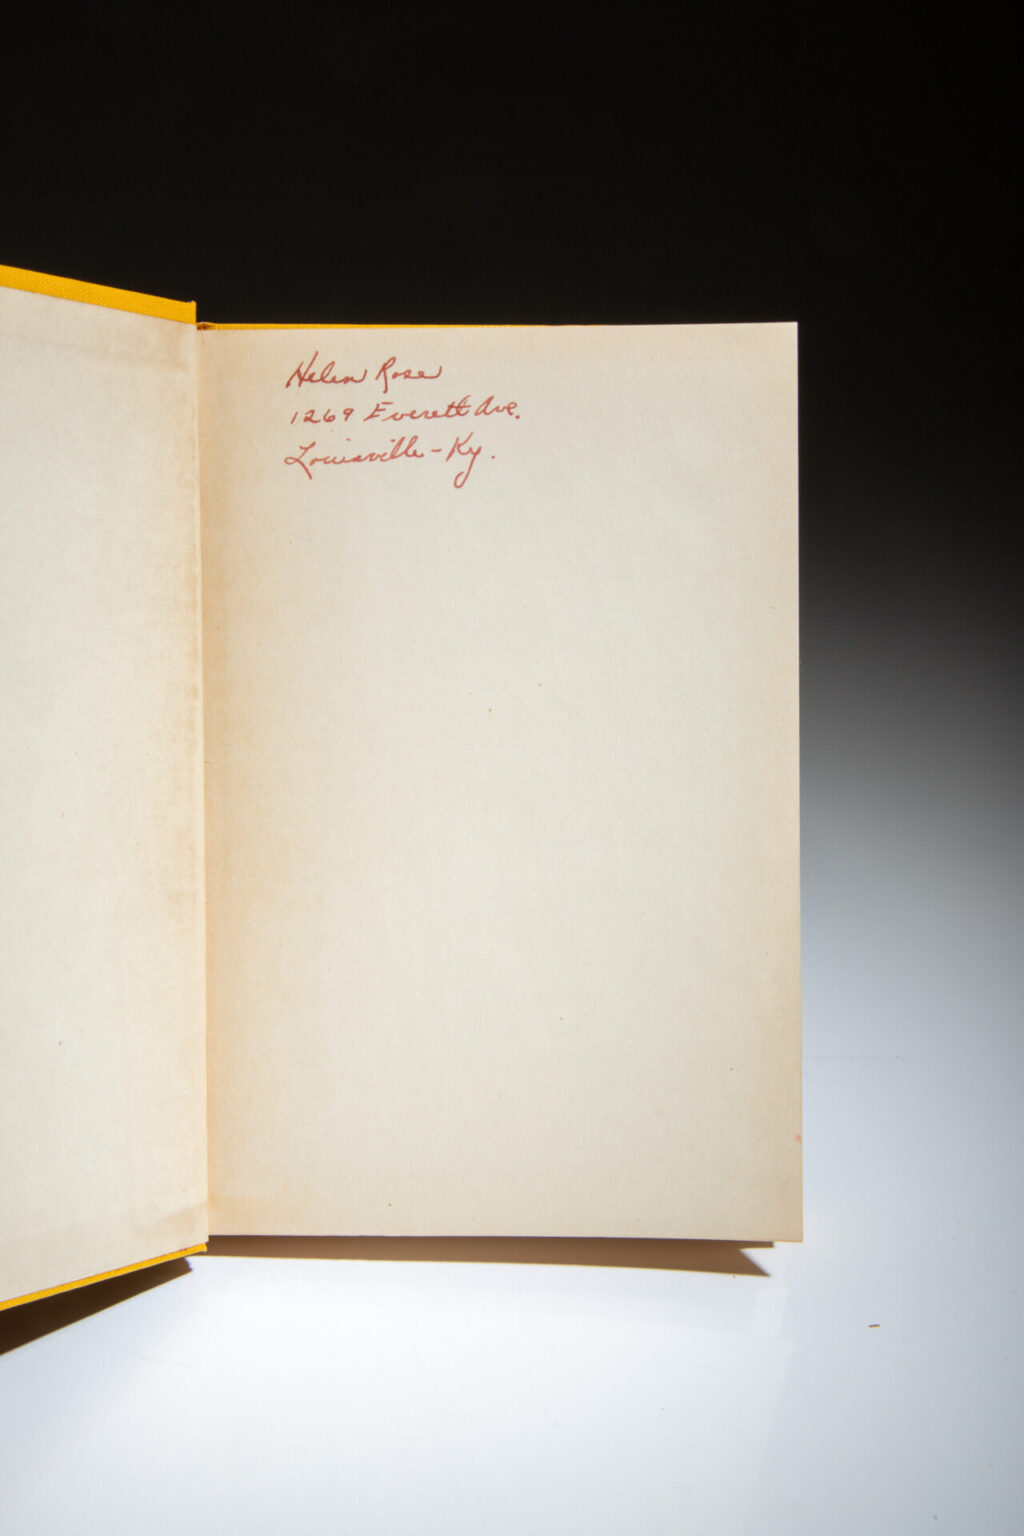 Helen Rose
1269 Everett Ave.
Louisville - Ky.